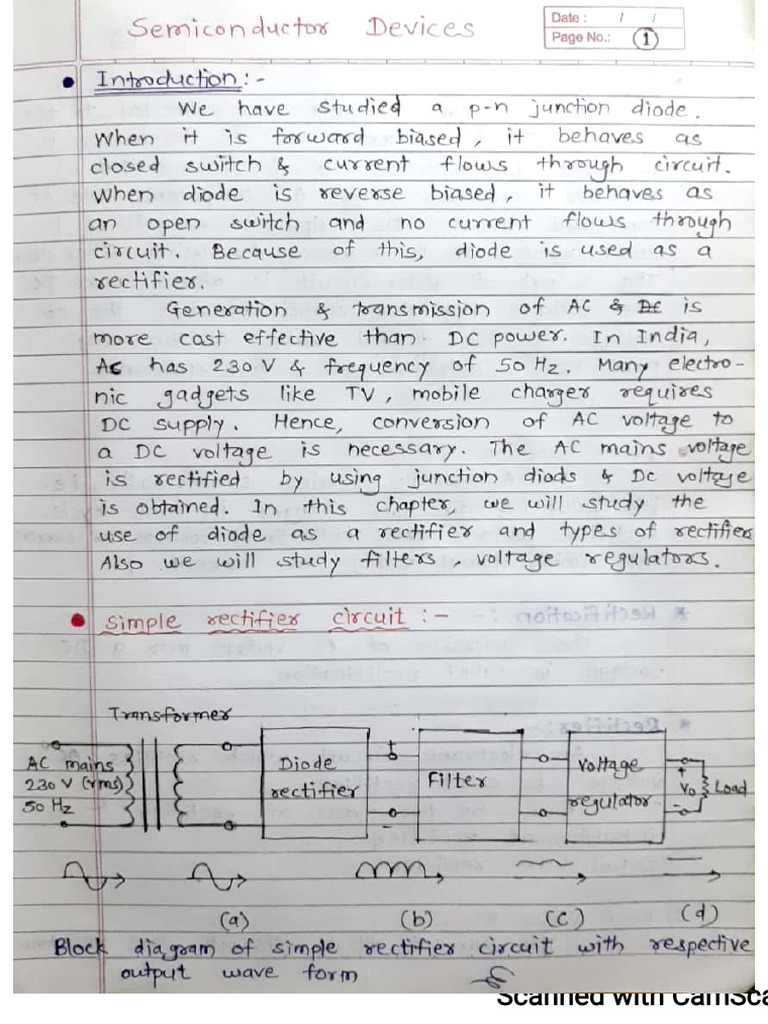 Semiconductor Devices
Date : / /
Page No.: 1
• Introduction :-
We have studied a p-n junction diode.
When it is forward biased, it behaves as
closed switch & current flows through circuit.
When diode is reverse biased, it behaves as
an open switch and no current flows through
circuit. Because of this, diode is used as a
rectifier.
Generation & transmission of AC & DC is
more cost effective than DC power. In India,
AC has 230 V & frequency of 50 Hz. Many electro-
nic gadgets like TV, mobile charger requires
DC supply. Hence, conversion of AC voltage to
a DC voltage is necessary. The AC mains voltage
is rectified by using junction diods & DC voltage
is obtained. In this chapter, we will study the
use of diode as a rectifier and types of rectifier
Also we will study filters, voltage regulators.
• Simple rectifier circuit :-
Transformer
AC mains
230 V (rms)
50 Hz
Diode
rectifier
+
-
Filter
Voltage
regulator
+
Vo
-
Load
(a) (b) (c) (d)
Block diagram of simple rectifier circuit with respective
output wave form
Scanned with CamSca